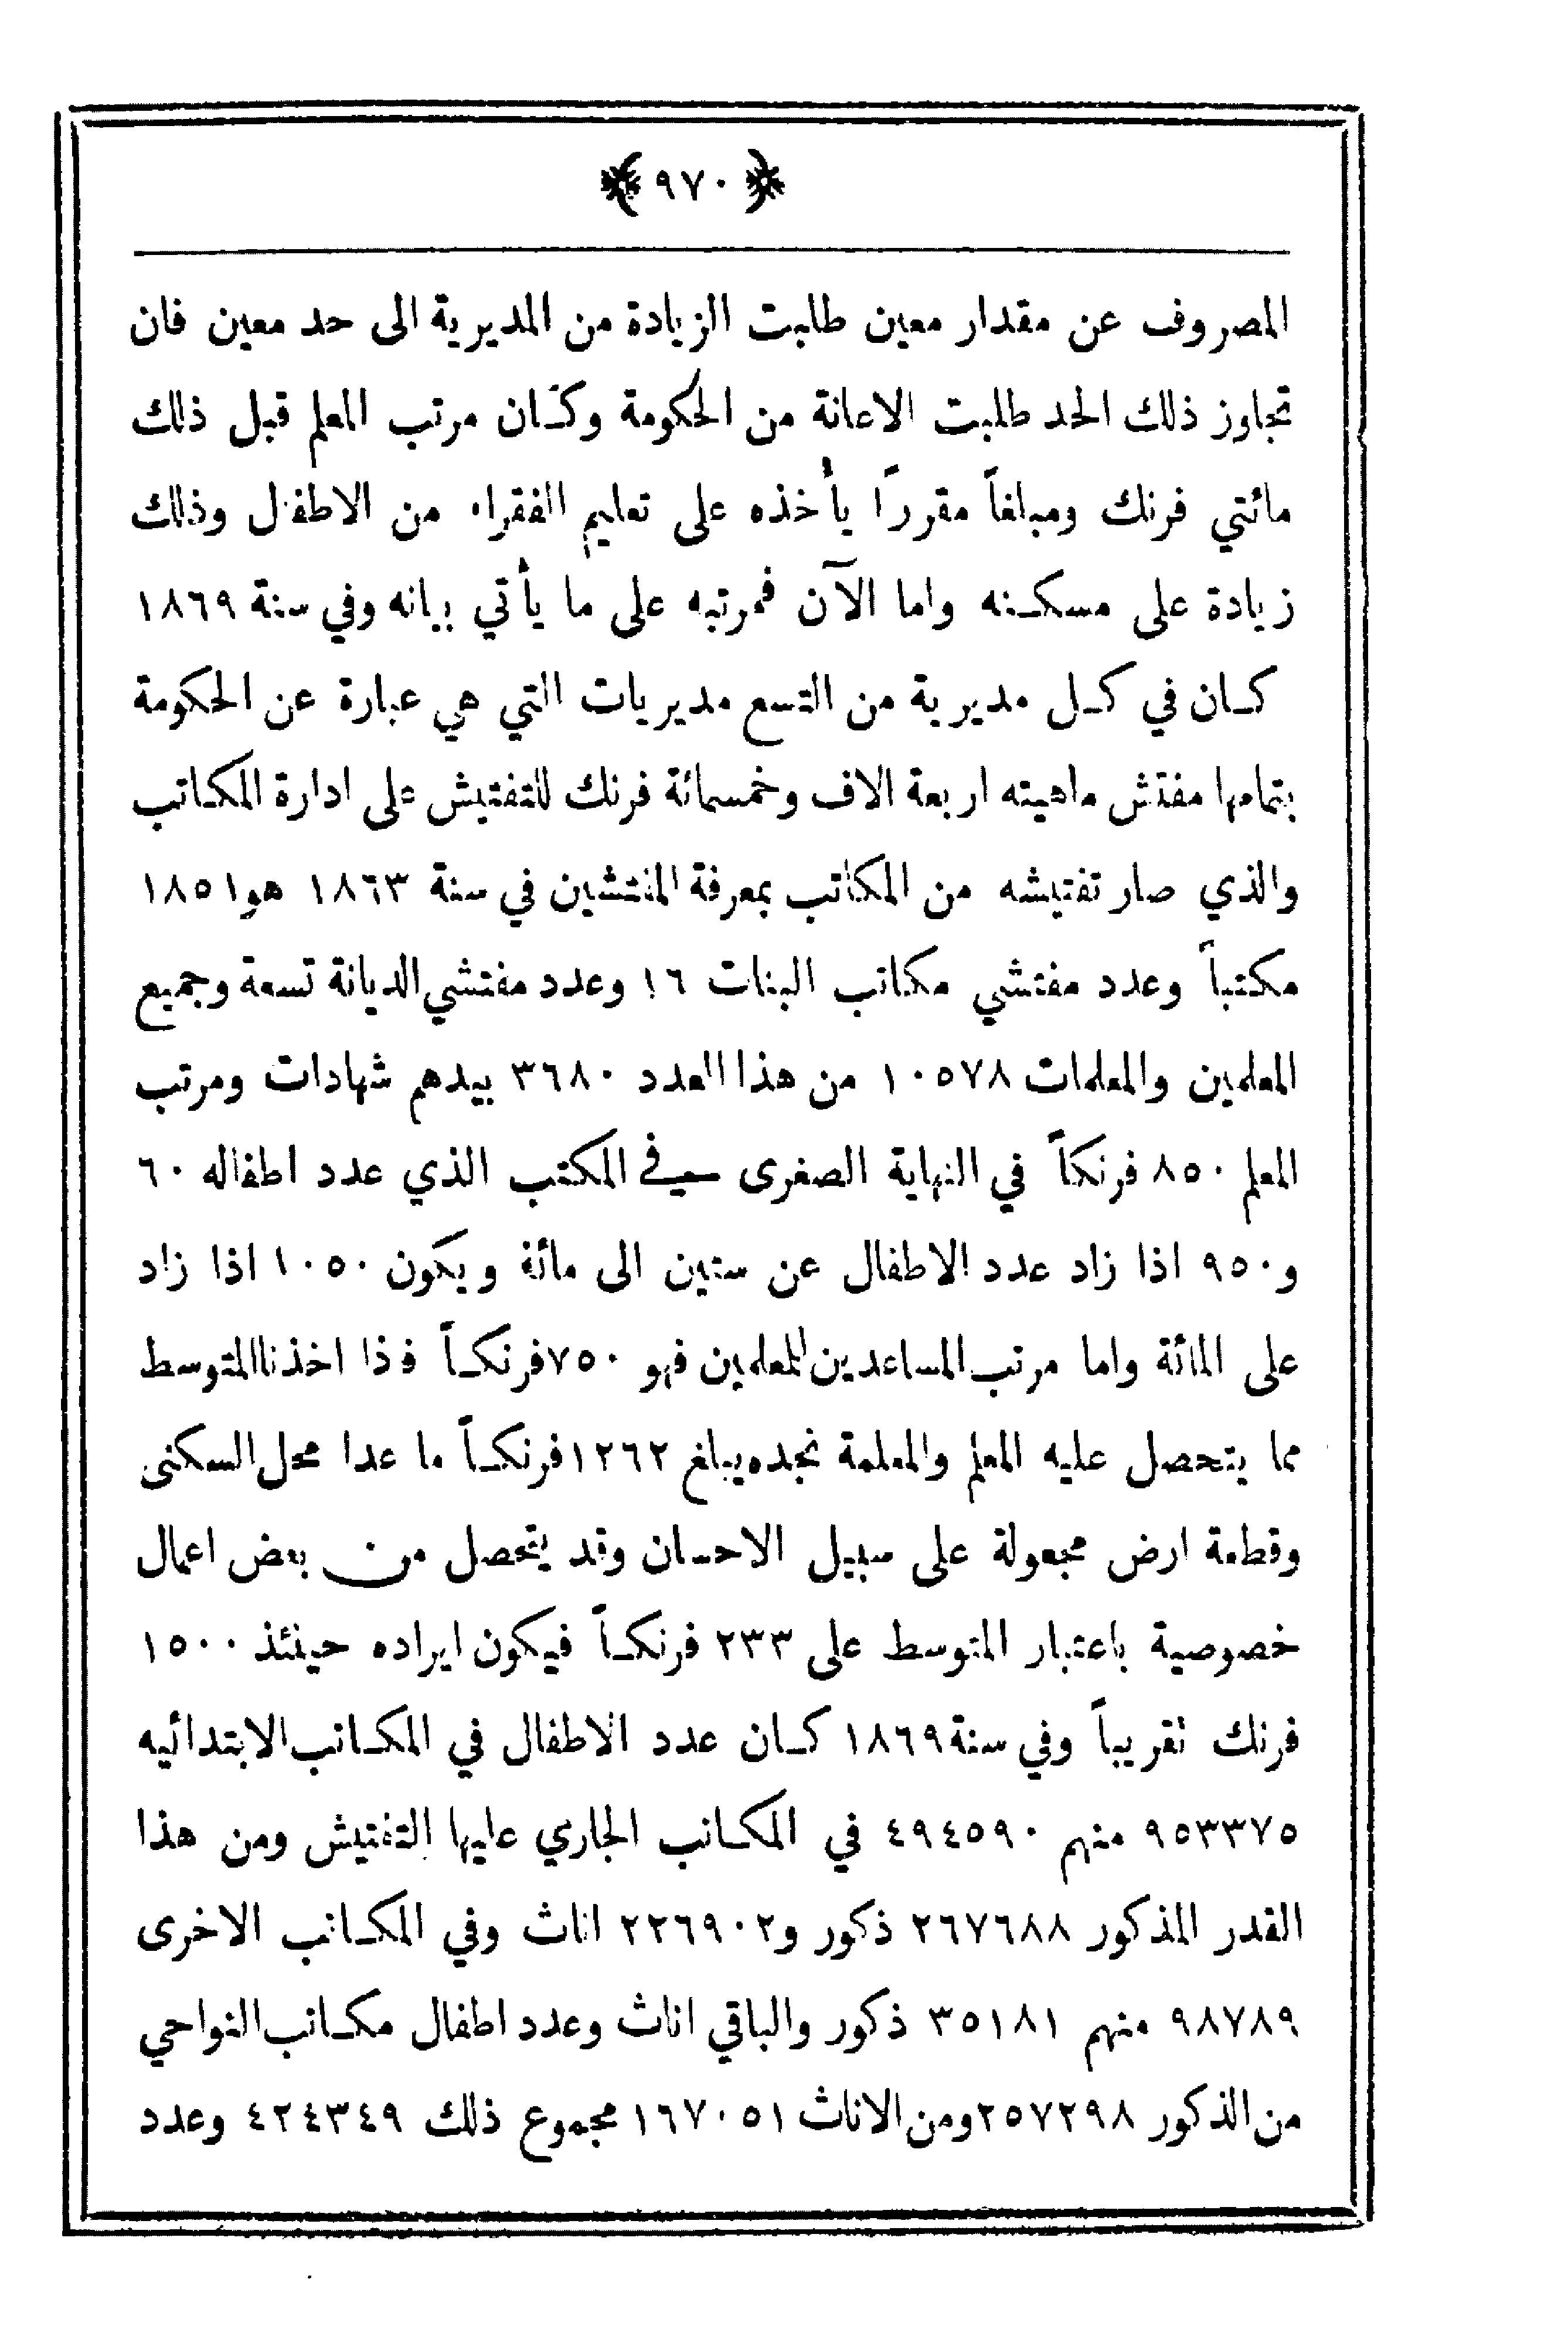 ﴿ ٩٧٠ ﴾
المصروف عن مقدار معين طلبت الزيادة من المديرية الى حد معين فان
تجاوز ذلك الحد طلبت الاعانة من الحكومة وكان مرتب المعلم قبل ذلك
مائتي فرنك ومبلغاً مقررًا يأخذه على تعليم الفقراء من الاطفال وذلك
زيادة على مسكنه واما الآن فمرتبه على ما يأتي بيانه وفي سنة ١٨٦٩
كان في كل مديرية من التسع مديريات التي هي عبارة عن الحكومة
بتمامها مفتش ماهيته اربعة الاف وخمسمائة فرنك للتفتيش على ادارة المكاتب
والذي صار تفتيشه من المكاتب بمعرفة المفتشين في سنة ١٨٦٣ هو ١٨٥١
مكتباً وعدد مفتشي مكاتب البنات ١٦ وعدد مفتشي الديانة تسعة وجميع
المعلمين والمعلمات ١٠٥٧٨ من هذا العدد ٣٦٨٠ بيدهم شهادات ومرتب
المعلم ٨٥٠ فرنكاً في النهاية الصغرى في المكتب الذي عدد اطفاله ٦٠
و٩٥٠ اذا زاد عدد الاطفال عن ستين الى مائة ويكون ١٠٥٠ اذا زاد
على المائة واما مرتب المساعدين للمعلمين فهو ٧٥٠ فرنكاً فذا اخذنا المتوسط
مما يتحصل عليه المعلم والمعلمة نجده يبلغ ١٢٦٢ فرنكاً ما عدا محل السكنى
وقطعة ارض مجعولة على سبيل الاحسان وقد يتحصل من بعض اعمال
خصوصية باعتبار المتوسط على ٢٣٣ فرنكاً فيكون ايراده حينئذ ١٥٠٠
فرنك تقريباً وفي سنة ١٨٦٩ كان عدد الاطفال في المكاتب الابتدائيه
٩٥٣٣٧٥ منهم ٤٩٤٥٩٠ في المكاتب الجاري عليها التفتيش ومن هذا
القدر المذكور ٢٦٧٦٨٨ ذكور و٢٢٦٩٠٢ اناث وفي المكاتب الاخرى
٩٨٧٨٩ منهم ٣٥١٨١ ذكور والباقي اناث وعدد اطفال مكاتب النواحي
من الذكور ٢٥٧٢٩٨ ومن الاناث ١٦٧٠٥١ مجموع ذلك ٤٢٤٣٤٩ وعدد